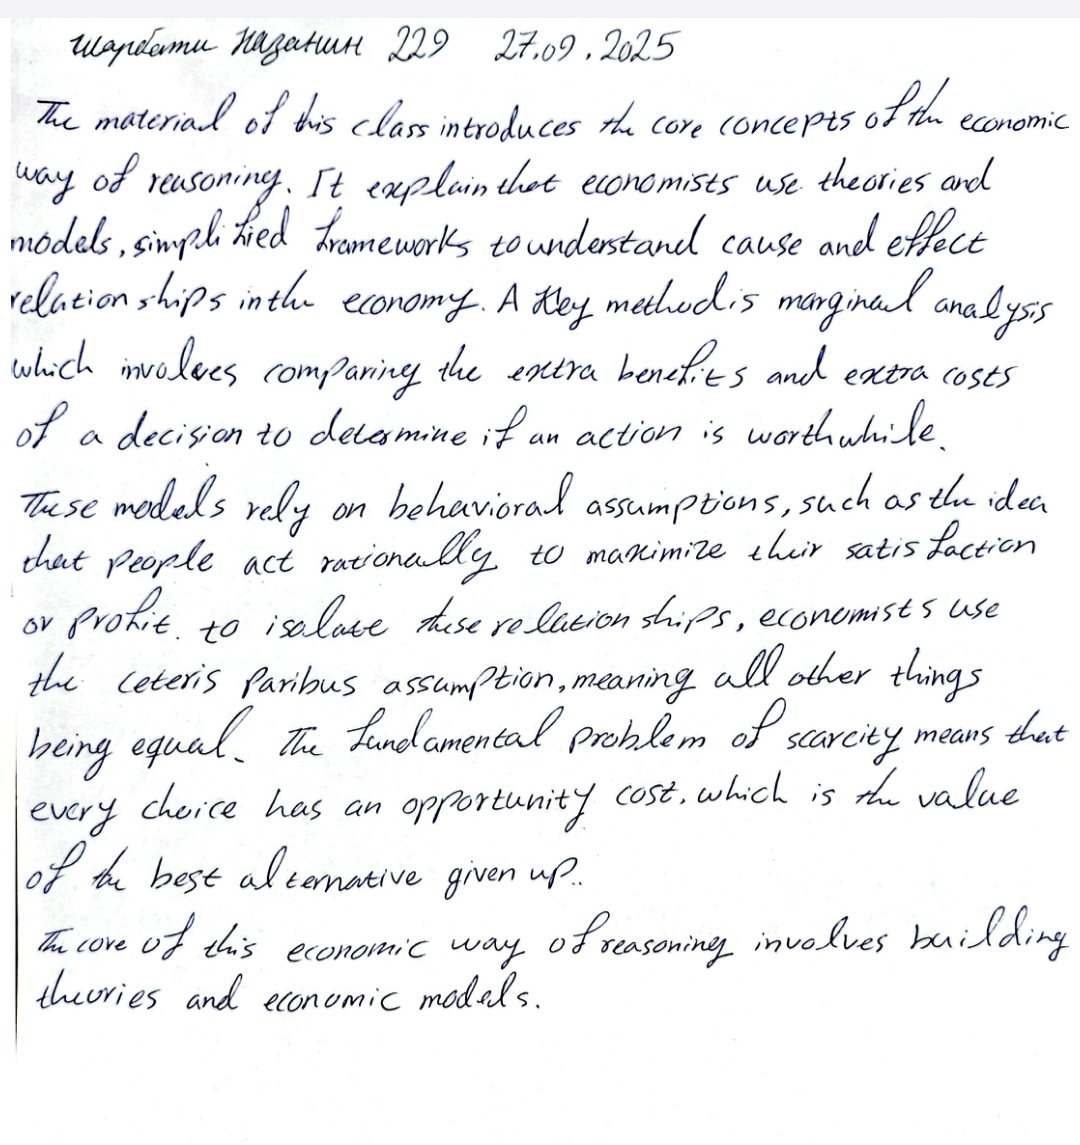 Шарбати Назанин 229 27.09.2025
The material of this class introduces the core concepts of the economic
way of reasoning. It explain that economists use theories and
models, simplified frameworks to understand cause and effect
relationships in the economy. A Key method is marginal analysis
which involves comparing the extra benefits and extra costs
of a decision to determine if an action is worthwhile.
These models rely on behavioral assumptions, such as the idea
that people act rationally to maximize their satisfaction
or profit. to isolate these relationships, economists use
the ceteris Paribus assumption, meaning all other things
being equal. The fundamental problem of scarcity means that
every choice has an opportunity cost. which is the value
of the best alternative given up..
The core of this economic way of reasoning involves building
theories and economic models.